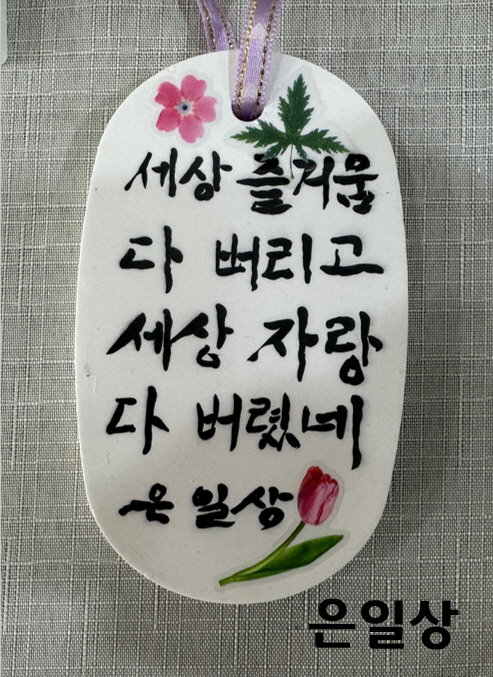 세상 즐거움
다 버리고
세상 자랑
다 버렸네
은 일상
은일상